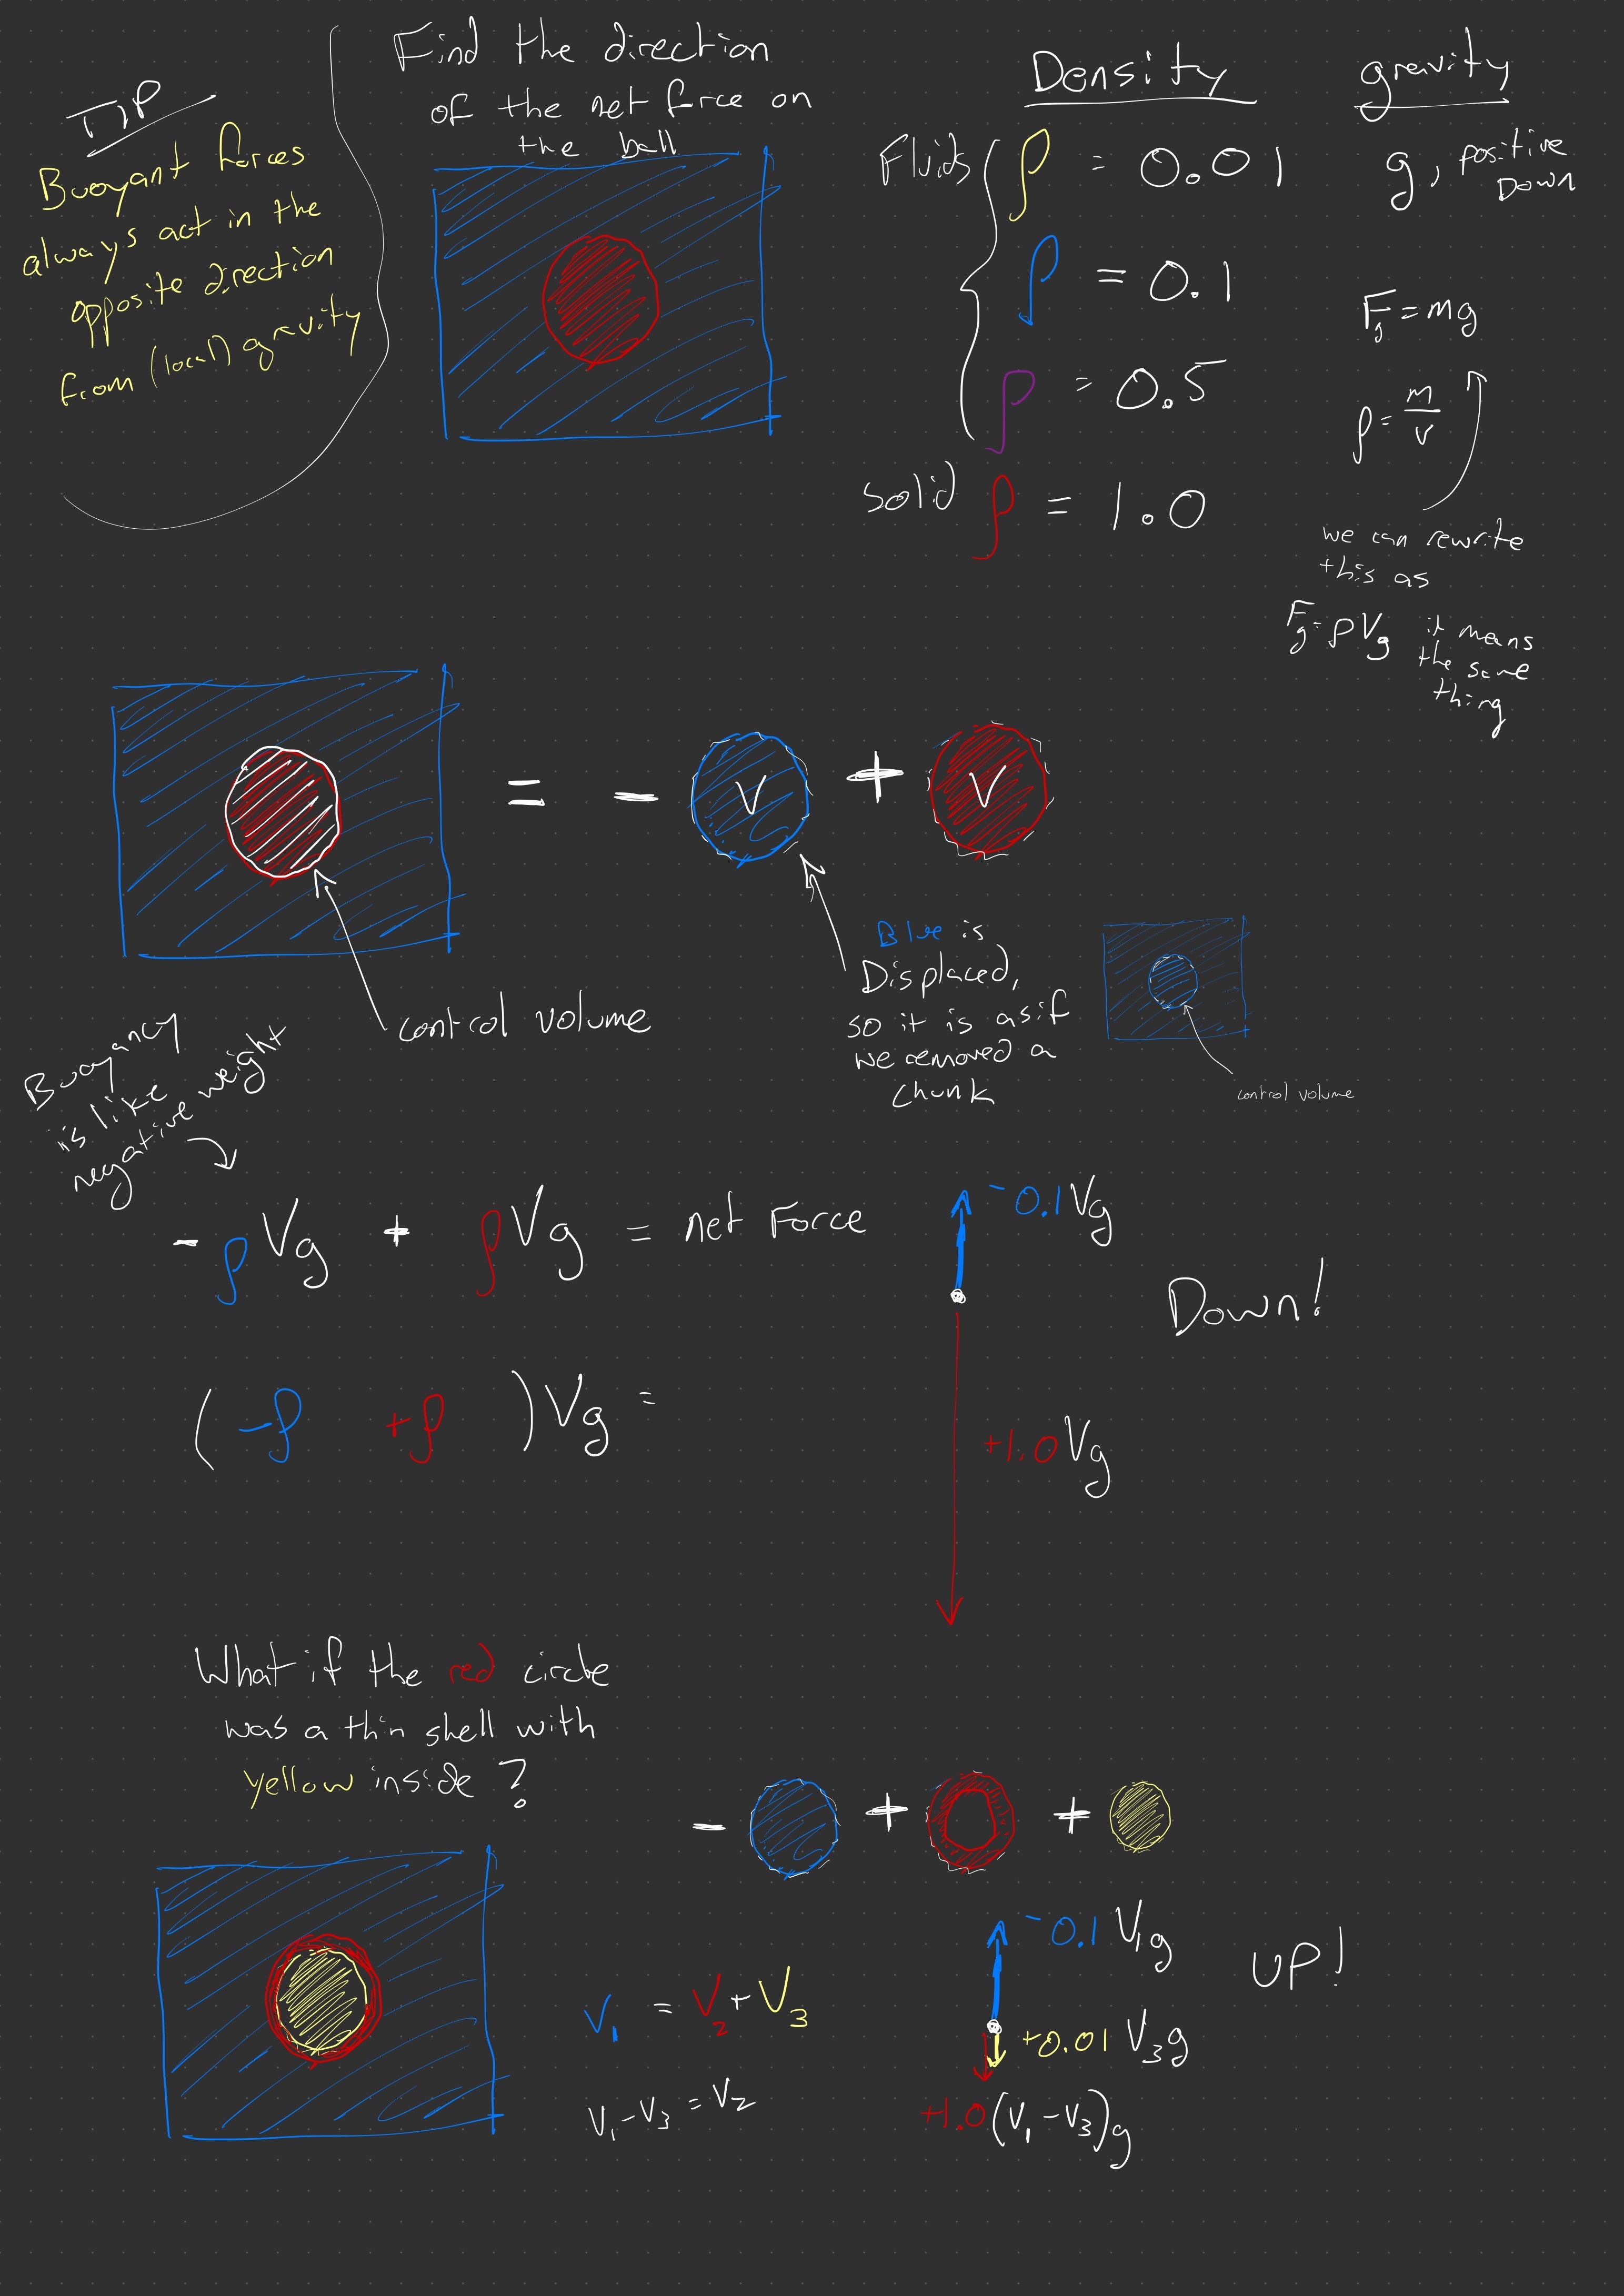 TIP
Buoyant forces
always act in the
opposite direction
from (local) gravity
Find the direction
of the net force on
the ball
Density
Fluids
ρ = 0.01
ρ = 0.1
ρ = 0.5
Solid ρ = 1.0
gravity
g, positive
Down
Fg = mg
ρ = m/v
we can rewrite
this as
Fg = ρVg it means
the same
thing
= - V + V
control volume
Blue is
Displaced,
so it is as if
we removed a
chunk
control volume
Buoyancy
is like
negative weight
- ρVg + ρVg = net Force
-0.1Vg
Down!
(-ρ +ρ)Vg =
+1.0Vg
What if the red circle
was a thin shell with
yellow inside?
- + +
V₁ = V₂ + V₃
V₁ - V₃ = V₂
-0.1 V₁g
UP!
+0.01 V₃g
+1.0(V₁ - V₃)g